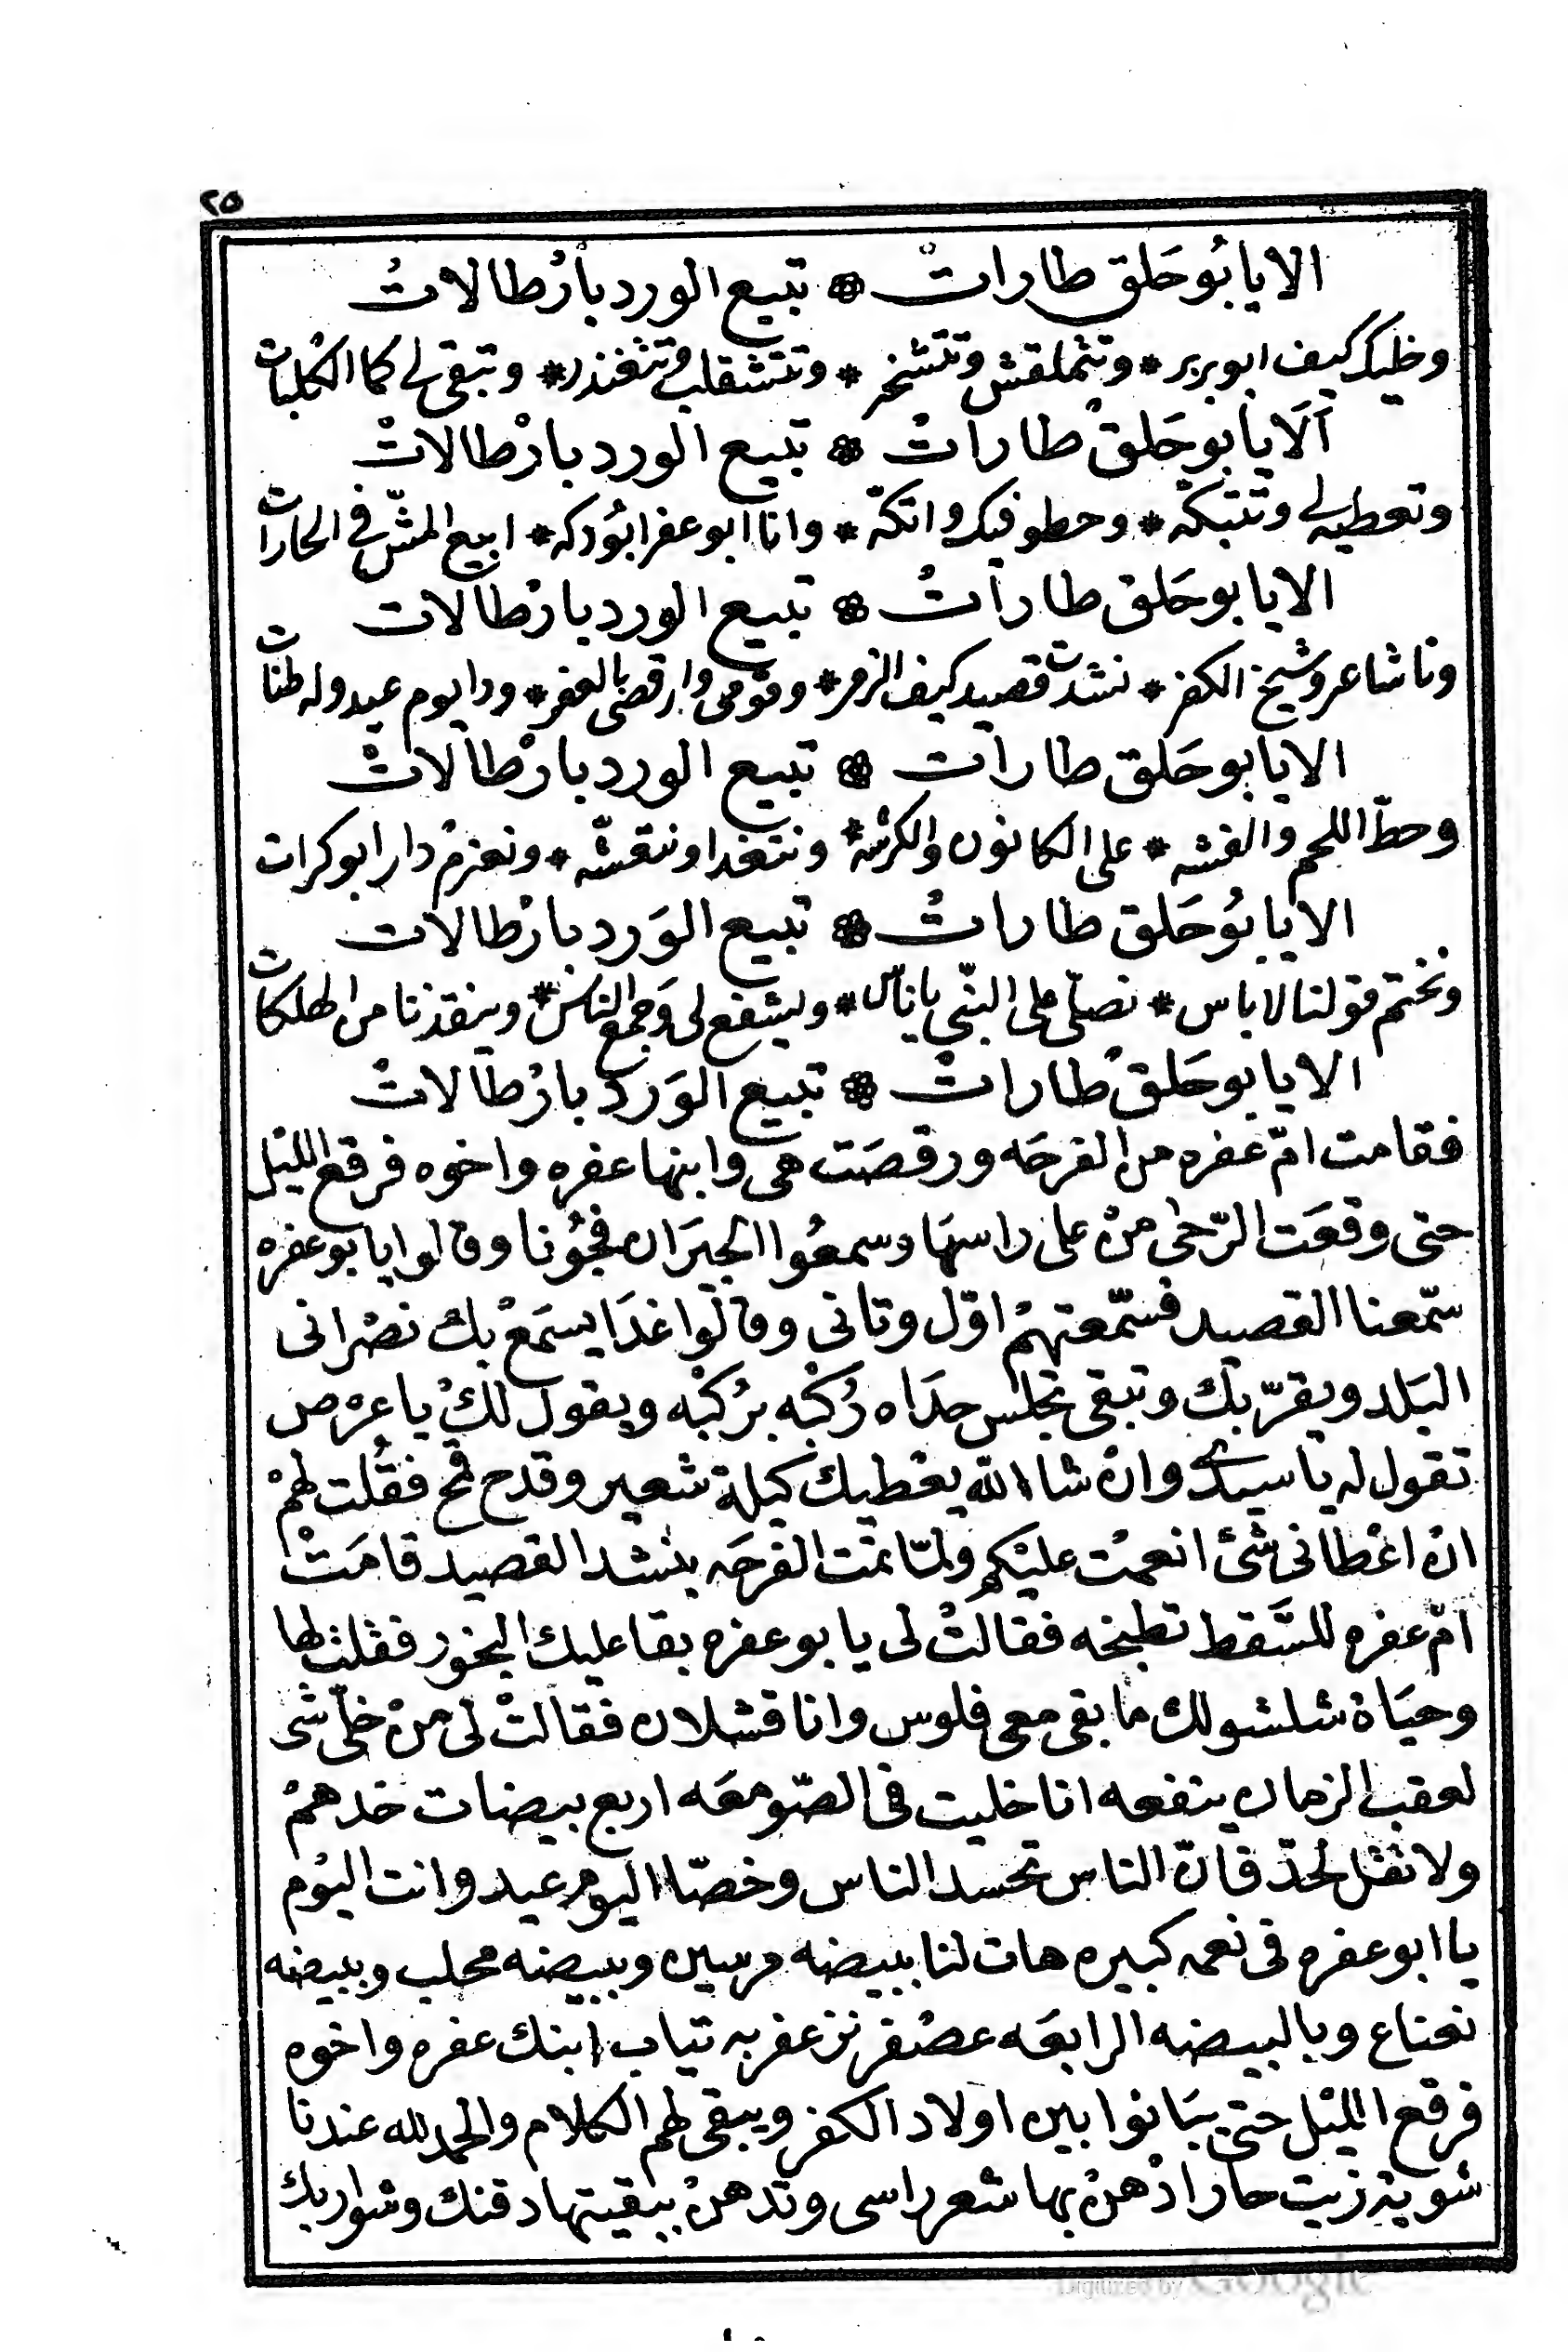 ٢٥
الا يا بُو حَلق طارات ۞ تبيع الورد بارْطالاتْ
وظيك كيف ابو بربر * وتتملقش وتتشخر * وتتشقلب وتتغندر * وتبقى لى كما الكلبات
اَلَا يا بو حَلقْ طاراتْ ۞ تبيع الورد بارْطالاتْ
وتعطيه لى وتتبكّه * وحطو فيك واتكّه * وانا ابو عفر ابُو دكه * ابيع المشّ فى الحارات
الا يا بو حَلقْ طاراتْ ۞ تبيع الورد بارْطالات
ونا شاعر وشيخ الكفر * نشدت قصيد كيف الزمر * وقومى وارقصى بالعفر * ودا يوم عيد وله طنات
الا يا بو حَلق طارات ۞ تبيع الورد بارْطالاتْ
وحطّ اللحم والفشه * على الكانون والكرشه * ونتغدا ونتقشّه * ونعزمْ دار ابو كرات
الا يا بُو حَلق طاراتْ ۞ تبيع الوَرد بارْطالات
ونختم قولنا لا باس * نصلّى على النبّى يا ناس * ويشفع لى وَجمع الناس * وينقذنا من الهلكات
الا يا بو حَلقْ طاراتْ ۞ تبيع الوَرد بارْطالاتْ
فقامت امّ عفره من الفرحَه ورقصَت هى وابنها عفره واخوه فرقع الليل
حتى وقعَت الرّحى منْ على راسهَا وسمعُوا الجيرَان فجُونا وقالوا يا بو عفره
سّمعنا القصيد فسّمعتهمْ اوّل وتانى وقالوا غدَا يسمَعْ بك نصْرانى
البَلد ويقرّ بك وتبقى تجلس حدَاه رُكبْه برُكبْه ويقول لكْ يا عرْص
تقول له يا سيدى وانْ شا الله يعْطيك كيلة شعير وقدح قمح فقُلت لهمْ
انْ اعْطانى شئ انعمت عليْكم ولمّا تمّت الفرحَه بنشد القصيد قامَتْ
امّ عفره للسَّقط تطبخه فقالتْ لى يا بو عفره بقا عليك البخور فقلت لها
وحيَاة شلشولك ما بقى معى فلوس وانا قشلان فقالتْ لى منْ خلّى شى
لعقب الزمان ينفعه انا خليت فى الصّومعَه اربع بيضات خدهمْ
ولا تقل لحدّ فانّ الناس تحسد الناس وخصّا اليوم عيد وانت اليُوم
يا ابو عفره فى نعمه كبيره هات لنا ببيضه مرسين وببيضه محلب وببيضه
نعناع وبالبيضه الرابعَه عصْفر نزعفر به تياب ابنك عفره واخوه
فرقع الليْل حتى يبَانوا بين اولاد الكفر ويبقى لهم الكلام والحمد لله عندنا
شوية زيت حار ادْهنْ بها شعر راسى وتدهنْ ببقيتها دقنك وشواربك
Digitized by Google